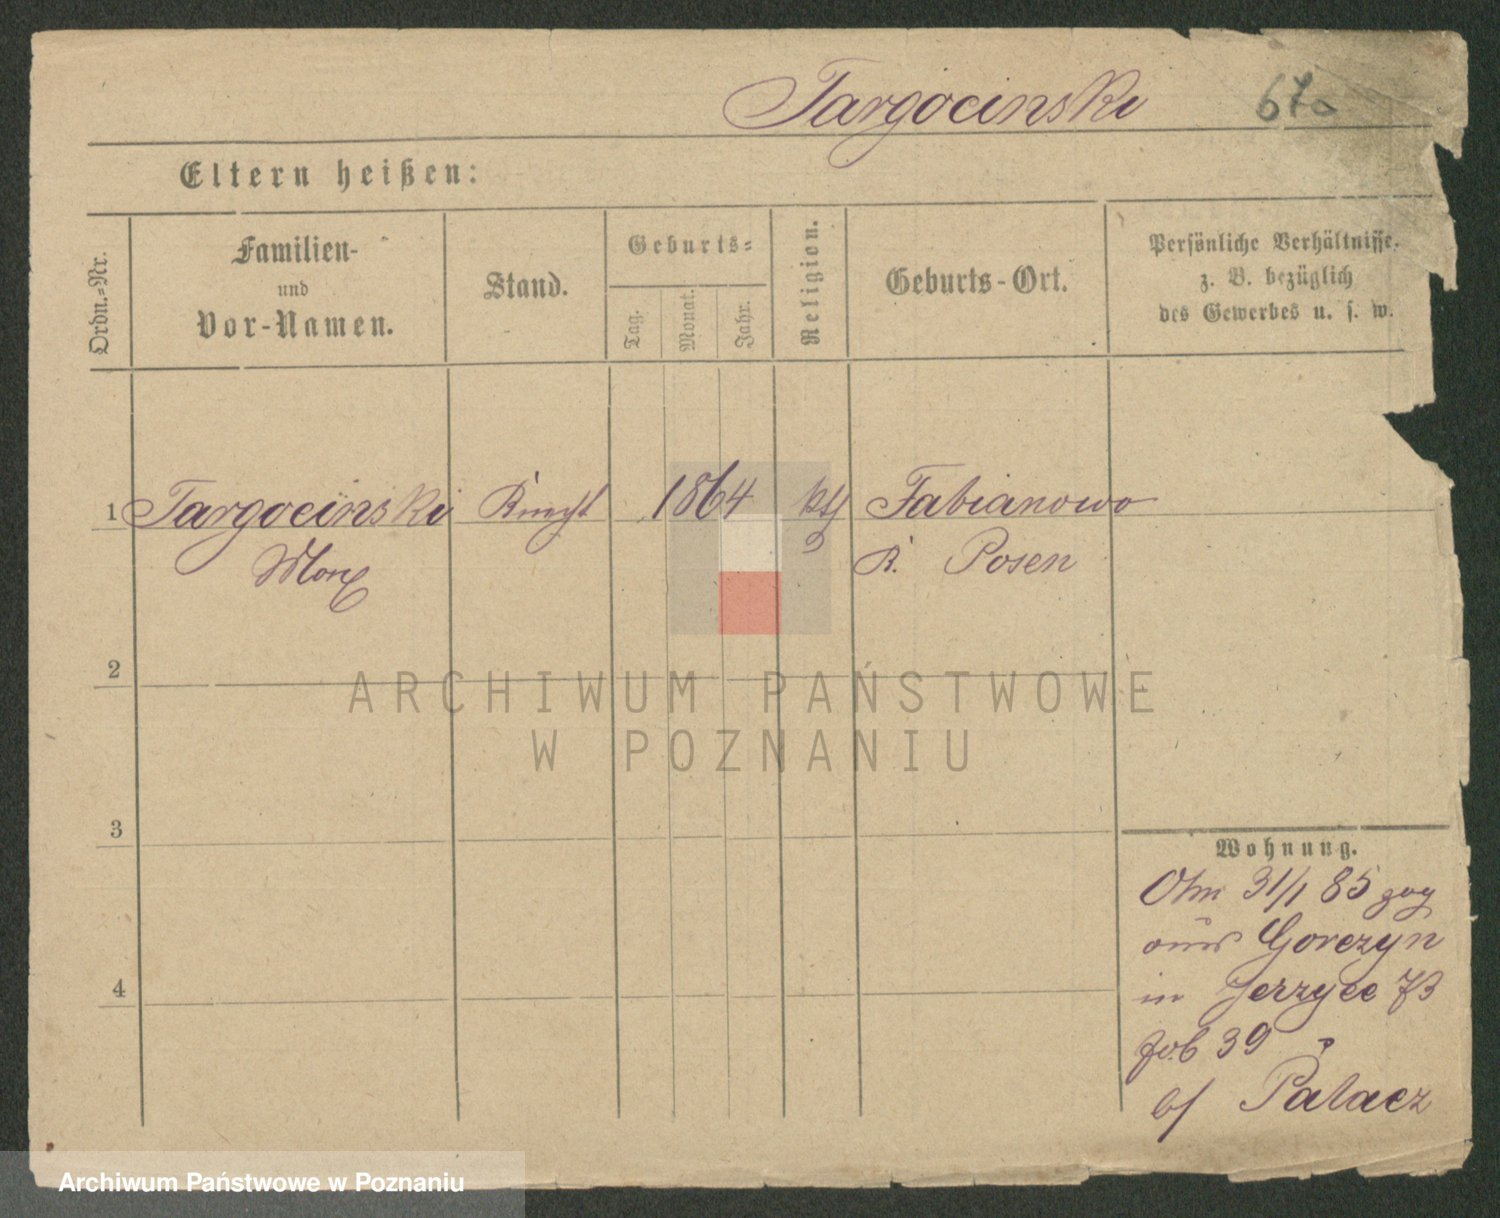 Targocinski 67a
Eltern heißen:
Ordn.-Nr.
Familien-
und
Vor-Namen.
Stand.
Geburts-
Tag.
Monat.
Jahr.
Religion.
Geburts-Ort.
Persönliche Verhältnisse,
z. B. bezüglich
des Gewerbes u. s. w.
1 Targocinski Knecht 1864 kth Fabianowo
K. Posen
2
ARCHIWUM PAŃSTWOWE
W POZNANIU
3
Wohnung.
31/1 85 zog
aus Gorczyn
in Jerzyce 73
39
b/ Palacz
4
Archiwum Państwowe w Poznaniu